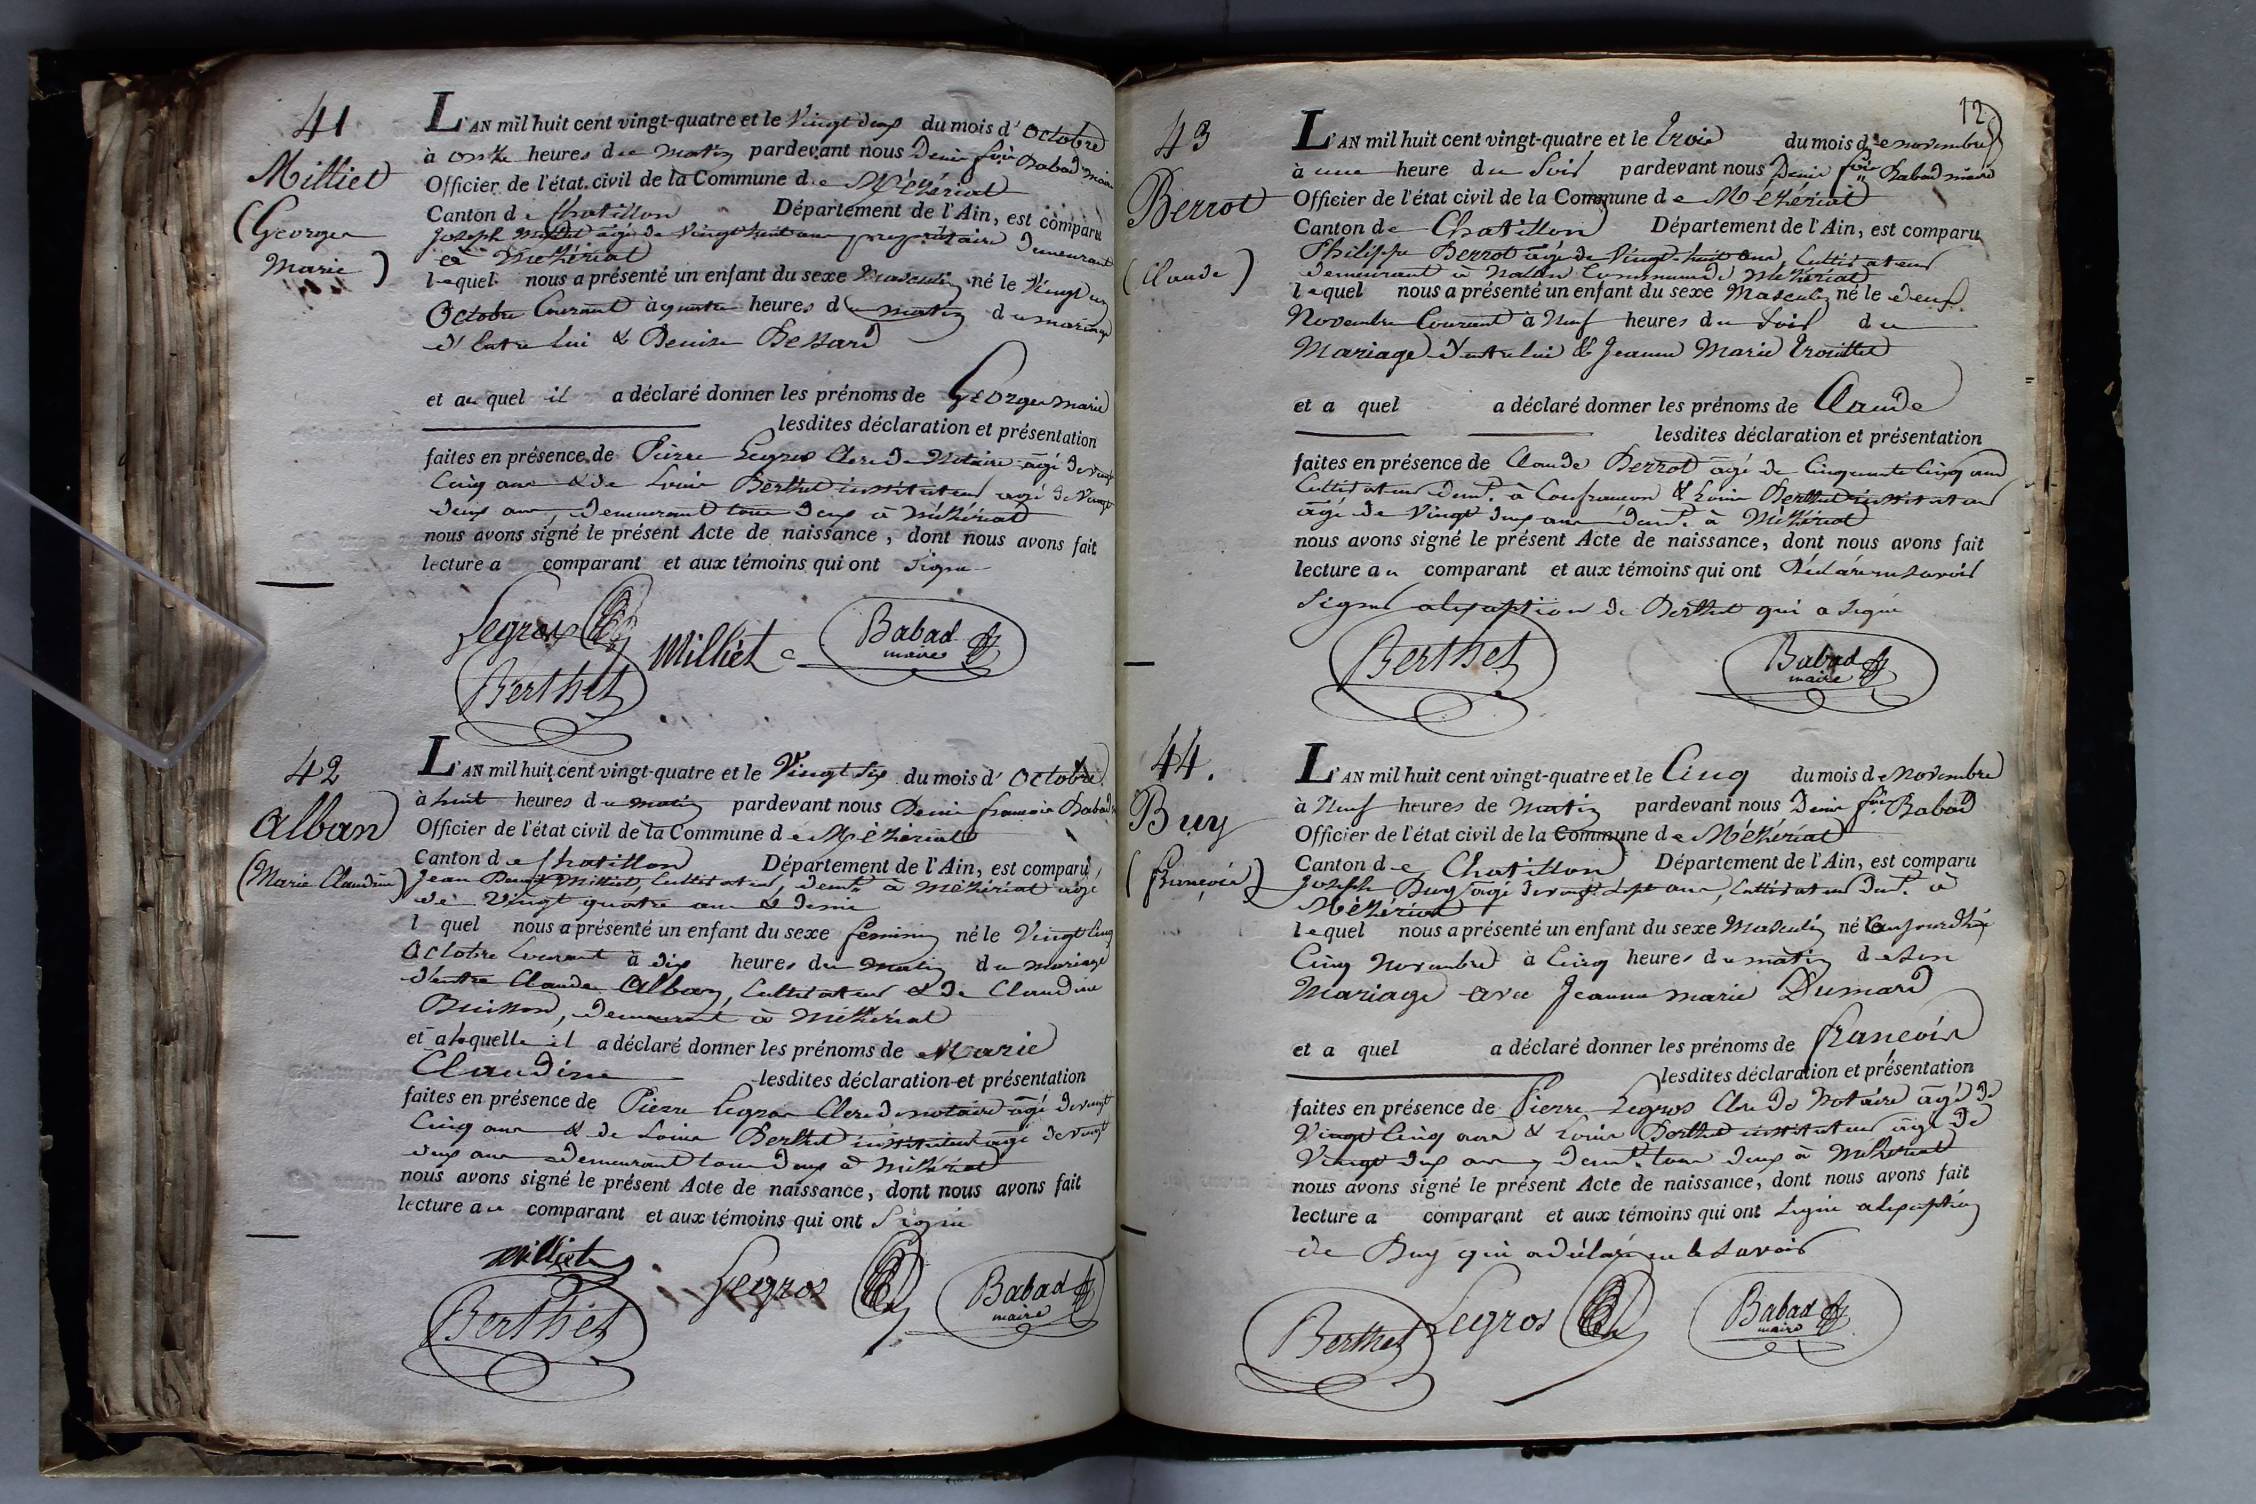 41
Milliet
(George
Marie)
L'AN mil huit cent vingt-quatre et le Vingt deux du mois d'Octobre
à onze heures du matin pardevant nous Denis fois Babad maire
Officier de l'état civil de la Commune de Mézériat
Canton de Chatillon Département de l'Ain, est comparu
Joseph Milliet agé de vingt huit ans propriétaire demeurant
à Mézériat
lequel nous a présenté un enfant du sexe Masculin né le Vingt un
Octobre Courant à quatre heures du matin du mariage
d'Entre lui & Denise Bessard
et auquel il a déclaré donner les prénoms de George marie
lesdites déclaration et présentation
faites en présence de Pierre Legros Clerc de Notaire agé de vingt
Cinq ans & de Louis Berthet instituteur agé de Vingt
deux ans, demeurant tous deux à Mézériat
nous avons signé le présent Acte de naissance, dont nous avons fait
lecture a comparant et aux témoins qui ont signé
Legros Milliet Babad
maire
Berthet
42
Alban
(Marie Claudine)
L'AN mil huit cent vingt-quatre et le Vingt Six du mois d'Octobre
à huit heures du matin pardevant nous Denis francois Babad
Officier de l'état civil de la Commune de Mézériat
Canton de Chatillon Département de l'Ain, est comparu
Jean Benoit Milliet, Cultivateur, demt à Mézériat agé
de vingt quatre ans & demie
l quel nous a présenté un enfant du sexe feminin né le Vingt Cinq
Octobre Courant à dix heures du matin du mariage
d'entre Claude Alban, Cultivateur & de Claudine
Buisson, demeurant à Mézériat
et à laquelle il a déclaré donner les prénoms de Marie
Claudine lesdites déclaration et présentation
faites en présence de Pierre Legros Clerc de notaire agé de vingt
Cinq ans & de Louis Berthet instituteur agé de vingt
deux ans demeurant tous deux à Mézériat
nous avons signé le présent Acte de naissance, dont nous avons fait
lecture au comparant et aux témoins qui ont Signé
Milliet Legros Babad
maire
Berthet
12
43
Berrot
(Claude)
L'AN mil huit cent vingt-quatre et le trois du mois de novembre
à une heure du Soir pardevant nous Denis fois Babad maire
Officier de l'état civil de la Commune de Mézériat
Canton de Chatillon Département de l'Ain, est comparu
Philippe Berrot agé de Vingt-huit ans, Cultivateur
demeurant à Commune de Mézériat
lequel nous a présenté un enfant du sexe Masculin né le deux
Novembre Courant à Neuf heures du Soir du
Mariage d'entre lui & Jeanne Marie Trouillet
et a quel a déclaré donner les prénoms de Claude
lesdites déclaration et présentation
faites en présence de Claude Berrot agé de Cinquante Cinq ans
Cultivateur demt. à Confrancon & Louis Berthet instituteur
agé de Vingt deux ans demt. à Mézériat
nous avons signé le présent Acte de naissance, dont nous avons fait
lecture au comparant et aux témoins qui ont Déclaré ne savoir
Signer à l'exception de Berthet qui a Signé
Berthet Babad
maire
44.
Buy
(francois)
L'AN mil huit cent vingt-quatre et le Cinq du mois de Novembre
à Neuf heures de Matin pardevant nous Denis fois Babad
Officier de l'état civil de la Commune de Mézériat
Canton de Chatillon Département de l'Ain, est comparu
Joseph Buy agé de vingt Sept ans, Cultivateur demt. à
Mézériat
lequel nous a présenté un enfant du sexe Masculin né le aujourdhui
Cinq Novembre à Cinq heures du matin de Son
Mariage avec Jeanne marie Dumard
et a quel a déclaré donner les prénoms de francois
lesdites déclaration et présentation
faites en présence de Pierre Legros Clerc de Notaire agé de
Vingt Cinq ans & Louis Berthet instituteur agé de
Vingt deux ans, demt. tous deux à Mézériat
nous avons signé le présent Acte de naissance, dont nous avons fait
lecture a comparant et aux témoins qui ont Signé à l'exception
de Buy qui a déclaré ne le savoir
Berthet Legros Babad
maire